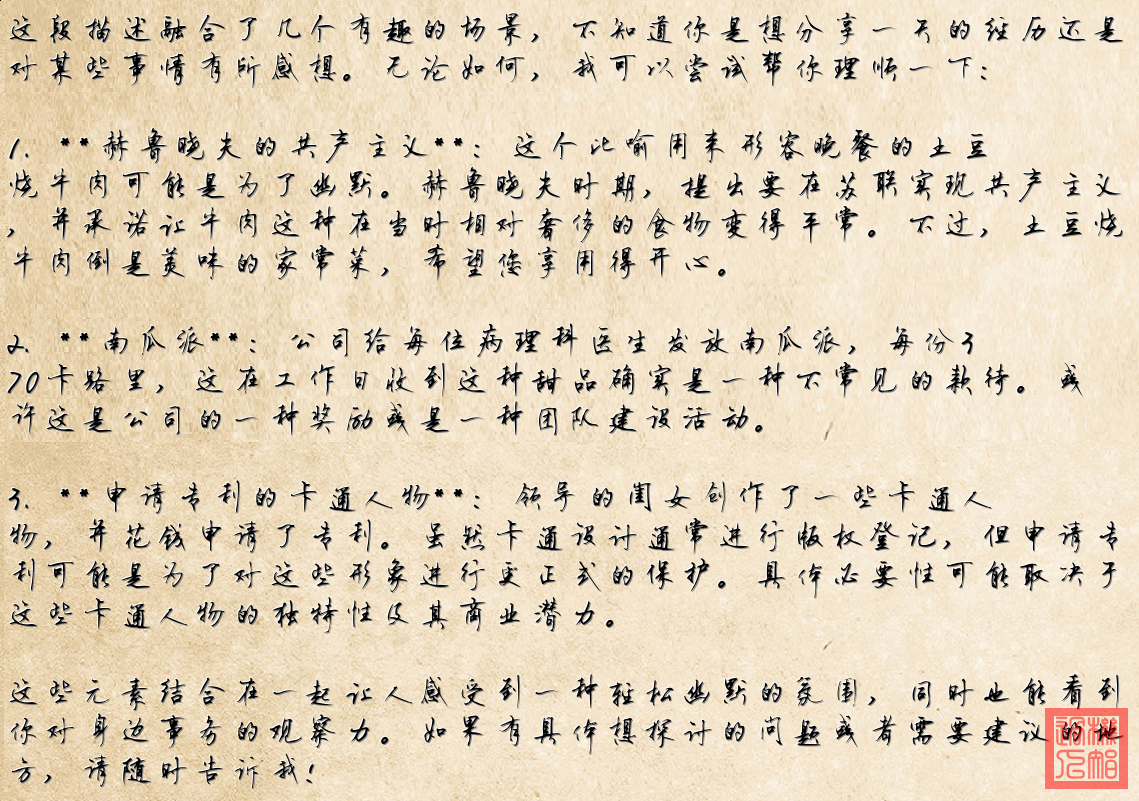 这段描述融合了几个有趣的场景，不知道你是想分享一天的经历还是
对某些事情有所感想。无论如何，我可以尝试帮你理顺一下：
1. **赫鲁晓夫的共产主义**：这个比喻用来形容晚餐的土豆
烧牛肉可能是为了幽默。赫鲁晓夫时期，提出要在苏联实现共产主义
，并承诺让牛肉这种在当时相对奢侈的食物变得平常。不过，土豆烧
牛肉倒是美味的家常菜，希望您享用得开心。
2. **南瓜派**：公司给每位病理科医生发放南瓜派，每份3
70卡路里，这在工作日收到这种甜品确实是一种不常见的款待。或
许这是公司的一种奖励或是一种团队建设活动。
3. **申请专利的卡通人物**：领导的闺女创作了一些卡通人
物，并花钱申请了专利。虽然卡通设计通常进行版权登记，但申请专
利可能是为了对这些形象进行更正式的保护。具体必要性可能取决于
这些卡通人物的独特性及其商业潜力。
这些元素结合在一起让人感受到一种轻松幽默的氛围，同时也能看到
你对身边事务的观察力。如果有具体想探讨的问题或者需要建议的地
方，请随时告诉我！